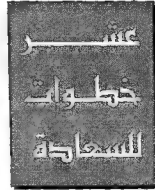 عشر
خطوات
للسعادة